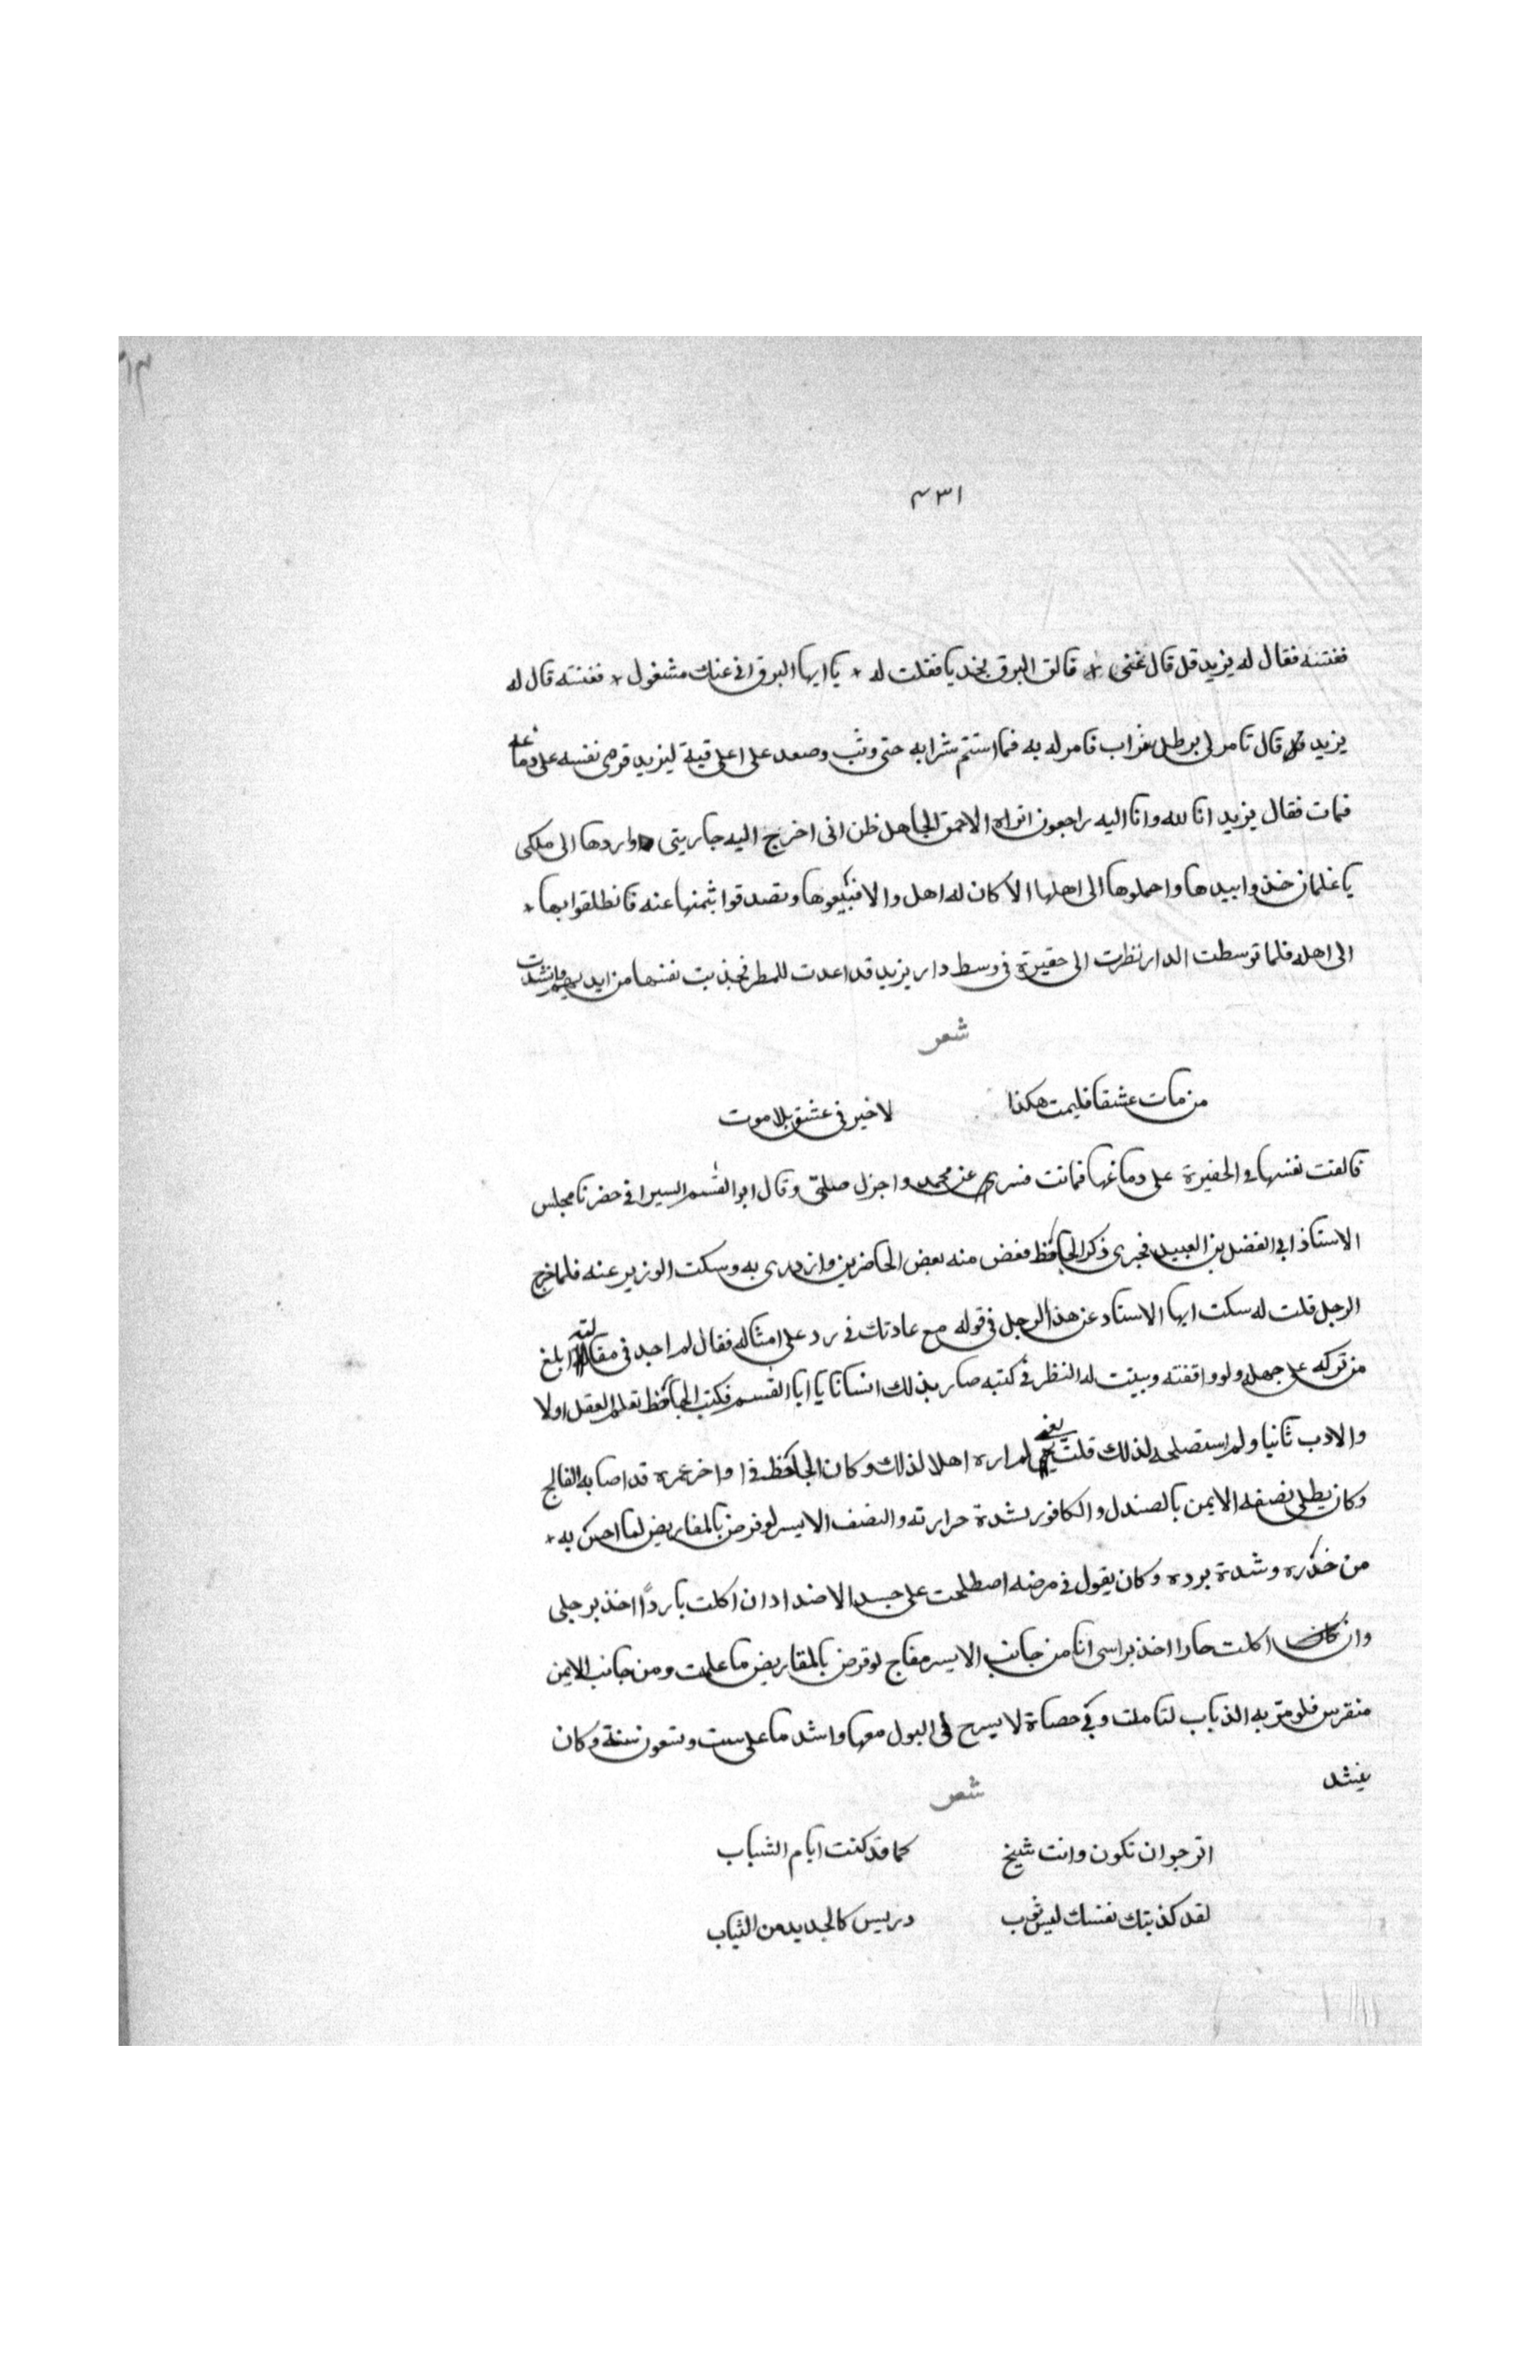 ٤٣١
فغنته فقال له يزيد قل قال تغنى + قالق البرق نجديا فقلت له + يا ايها البرق انى عنك مشغول + فغنته قال له
يزيد قل قال تامر لى برطل شراب فامر له به فما استتم شرابه حتى وثب وصعد على اعلى قبة ليزيد فرمى نفسه على دماغه
فمات فقال يزيد انا لله وانا اليه راجعون اتراه الاحمق الجاهل ظن انى اخرج اليه جاريتى واردها الى ملكى
يا غلمان خذوا بيدها واحملوها الى اهلها ان كان له اهل والا فبيعوها وتصدقوا بثمنها عنه فانطلقوا بها +
الى اهله فلما توسطت الدار نظرت الى حفيرة فى وسط دار يزيد قد اعدت للمطر فجذبت نفسها من ايديهم وانشدت
شعر
من مات عشقا فليمت هكذا لا خير فى عشق بلا موت
فالقت نفسها فى الحفيرة على دماغها فماتت فسرى عن محمد واجزل صلتى وقال ابو القسم السيرافى حضرنا مجلس
الاستاذ ابى الفضل بن العميد فجرى ذكر الجاحظ فغض منه بعض الحاضرين وازدرى به وسكت الوزير عنه فلما خرج
الرجل قلت له سكت ايها الاستاد عن هذا الرجل فى قوله مع عادتك فى رد على امثاله فقال لم اجد فى مقابلته ابلغ
من تركه على جهله ولو واقفته وبينت له النظر فى كتبه صار بذلك انسانا يا ابا القسم فكتب الجاحظ تعلم العقل اولا
والادب ثانيا ولم استصلحه لذلك قلت يعنى لم اره اهلا لذلك وكان الجاحظ فى اواخر عمره قد اصابه الفالج
وكان يطلى نصفه الايمن بالصندل والكافور لشدة حرارته والنصف الايسر لو قرض بالمقاريض لما احس به +
من خذره وشدة برده وكان يقول فى مرضه اصطلحت على جسد الاضداد ان اكلت باردًا اخذ برجلى
وان اكلت حارا اخذ براسى انا من جانب الايسر مفلج لو قرض بالمقاريض ما علمت ومن جانب الايمن
منقرس فلو مر به الذباب لتاملت وبى حصاة لا يسرح لى البول معها واشد ما على ست وتسعون سنة وكان
ينشد
شعر
اترجو ان تكون وانت شيخ كما قد كنت ايام الشباب
لقد كذبتك نفسك ليس ثوب دريس كالجديد من الثياب